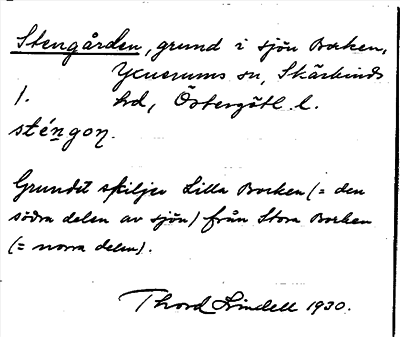 Stengården, grund i sjön Borken,
Yxnerums sn, Skärkinds
1. hd, Östergötl. l.
sténgoṇ.
Grundet skiljer Lilla Borken (= den
södra delen av sjön) från Stora Borken
(= norra delen).
Thord Lindell 1930.